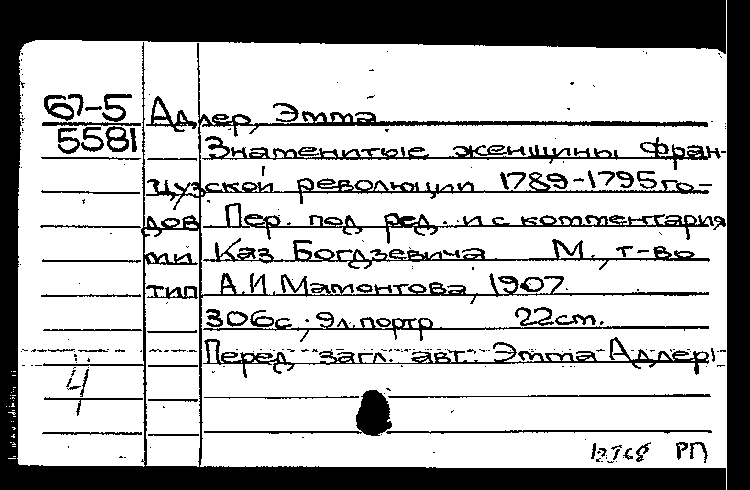 67-5 Адлер, Эмма
5581 Знаменитые женщины Фран-
цузской революции 1789-1795 го-
дов Пер. под ред. и с комментария
ми Каз Богдзевича М., т-во
тип А.И.Мамонтова, 1907.
306с.; 9л.портр 22см.
Перед загл. авт.: Эмма Адлер
4
РП